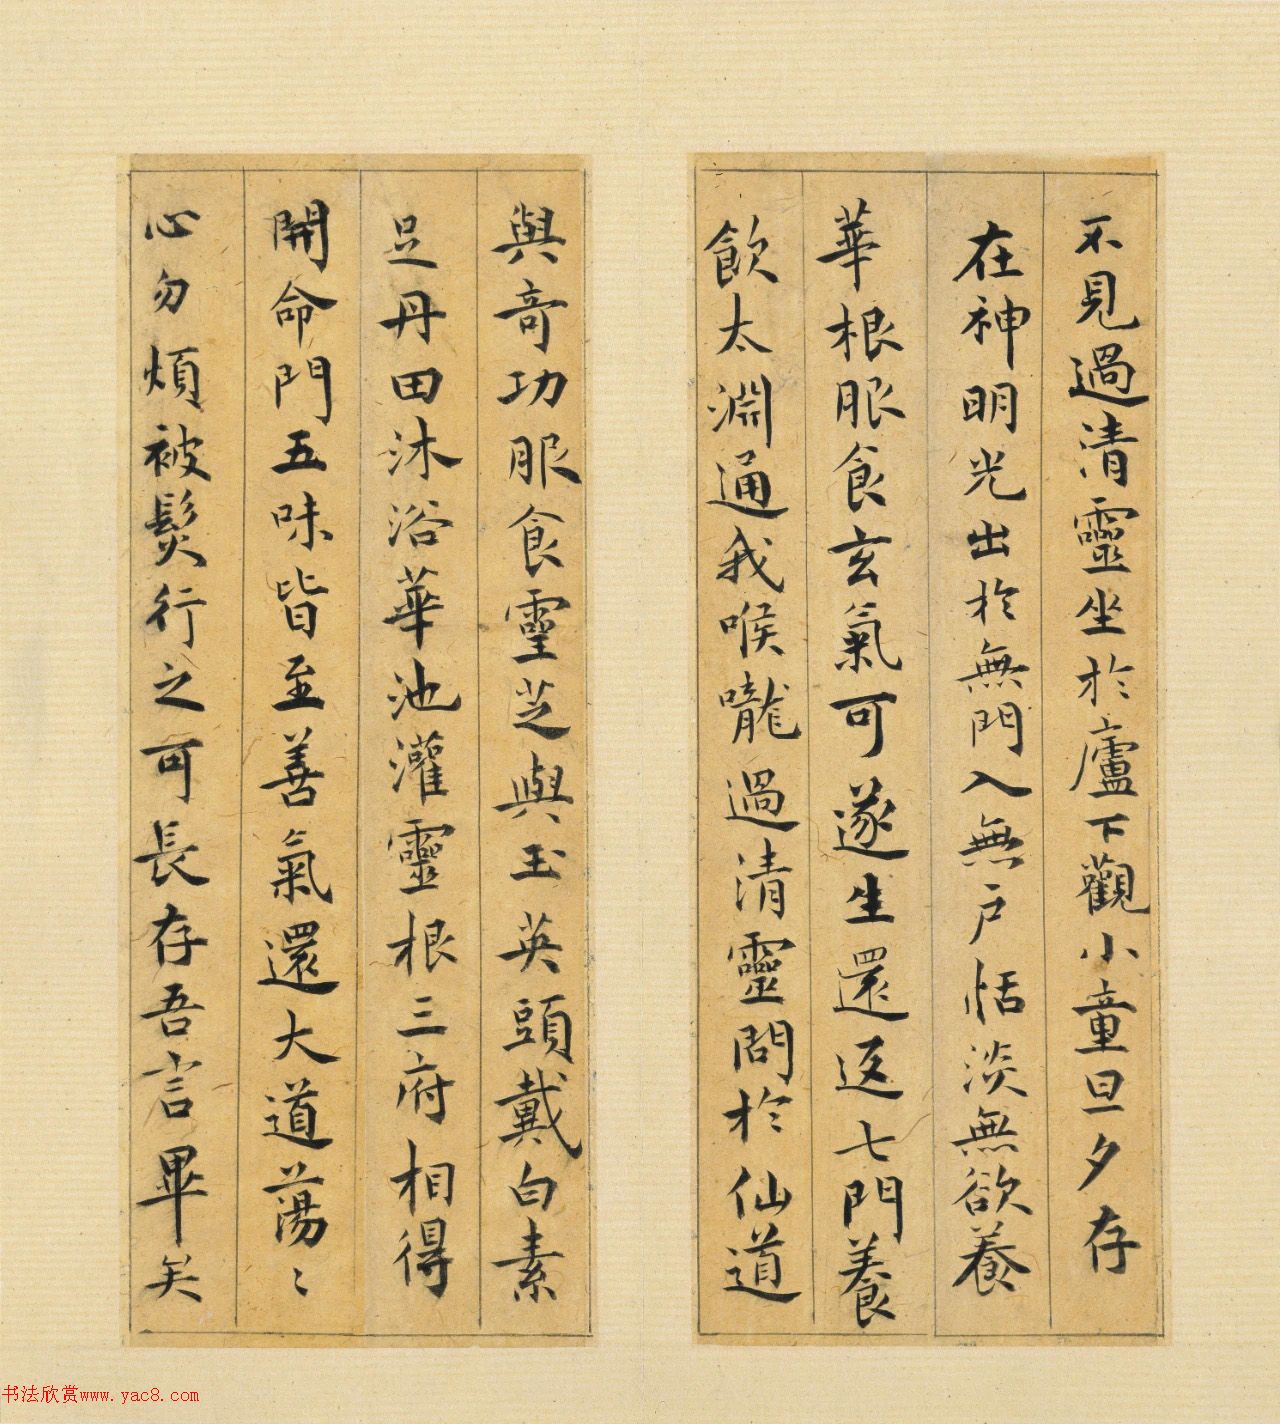 不見過清靈坐於廬下觀小童旦夕存
在神明光出於無門入無戶恬淡無欲養
華根服食玄氣可遂生還返七門養
飲太淵通我喉嚨過清靈問於仙道
與奇功服食靈芝與玉英頭戴白素
足丹田沐浴華池灌靈根三府相得
開命門五味皆至善氣還大道蕩〻
心勿煩被髮行之可長存吾言畢矣
书法欣赏www.yac8.com